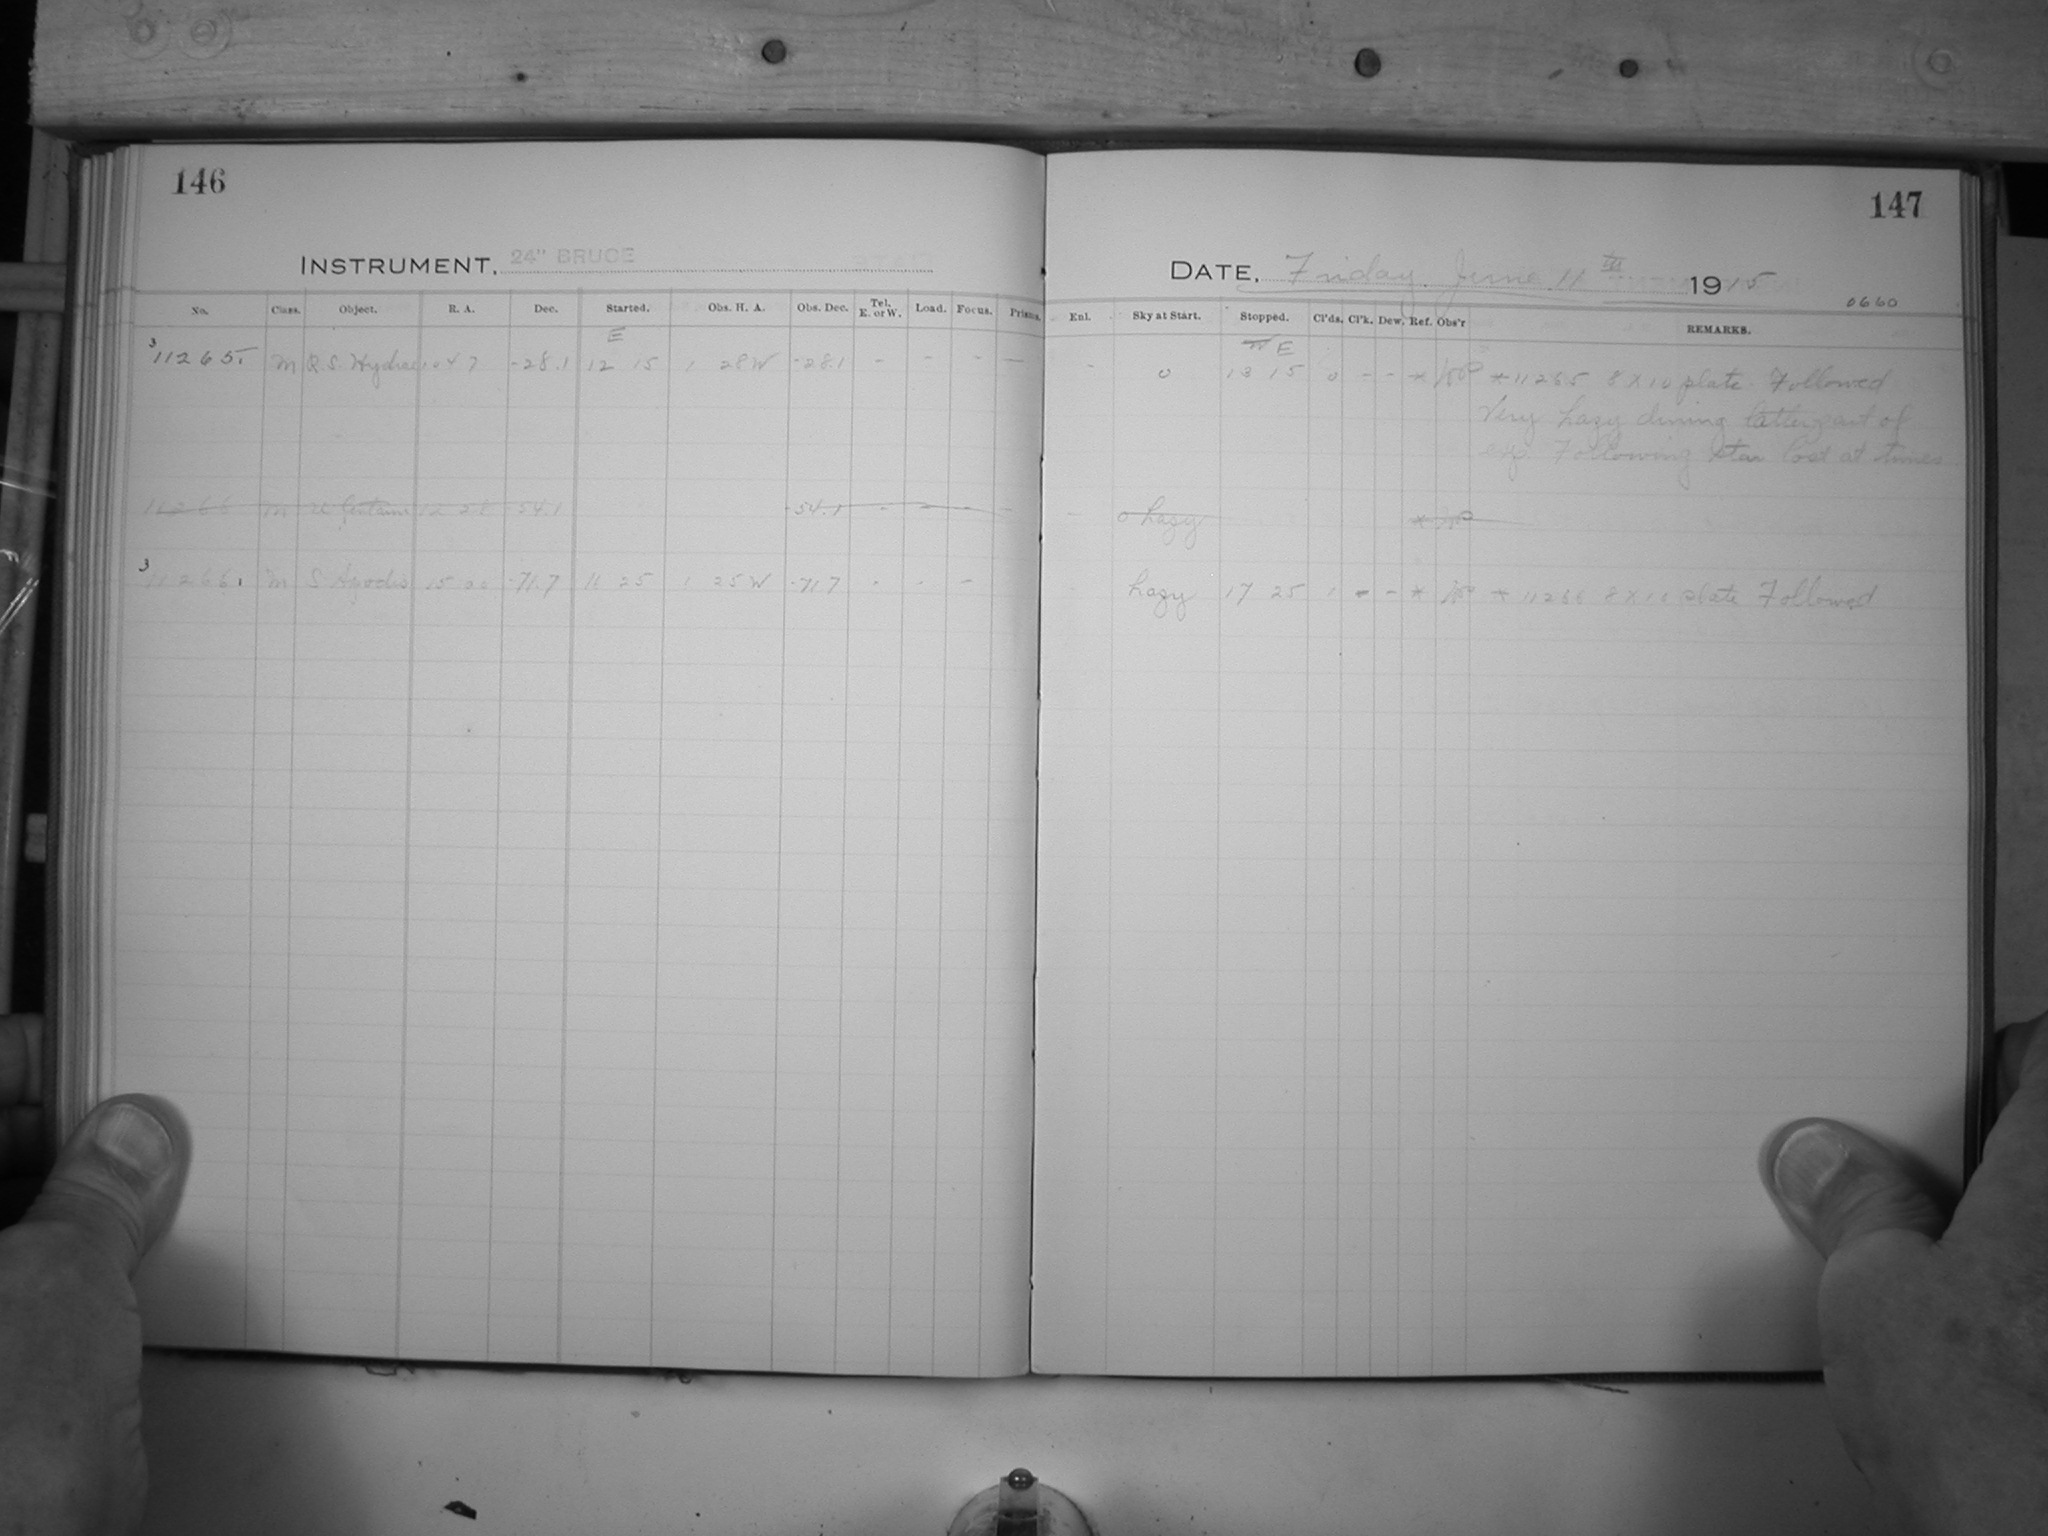 146
INSTRUMENT, 24" BRUCE
No. Class. Object. R. A. Dec. Started. Obs. H. A. Obs. Dec. Tel. E. or W. Load. Focus. Prisms.
E
3 11265. M R.S. Hydrae 10 47 -28.1 12 15 1 28 W -28.1 - - - -
11266 M U Centauri 12 28 -54.1 -54.1 - - - -
3 11266. M S Apodis 15 00 -71.7 -71.7 - - -
147
DATE, Friday June 11 1915
0660
Enl. Sky at Start. Stopped. Cl'ds. Cl'k. Dew. Ref. Obs'r REMARKS.
E
- 0 13 15 0 - - * * 11265 8 x 10 plate. Followed
Very hazy during latter part of
exp. Following star lost at times
- 0 hazy *
hazy 17 25 1 - - * * 11266 8 x 10 plate Followed